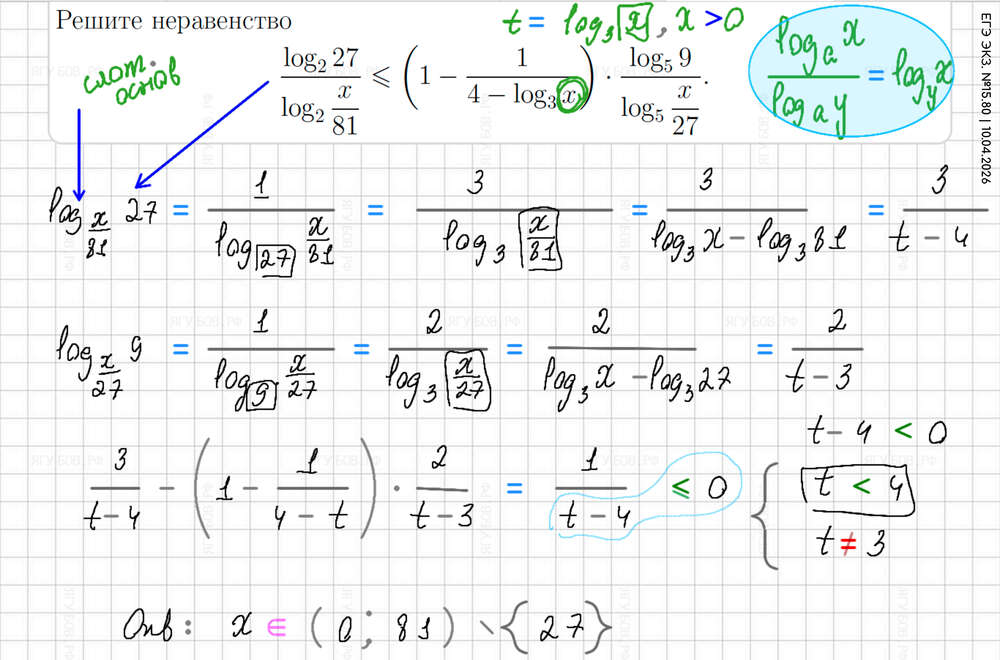 Решите неравенство
t = log₃ x, x > 0
слот. основ
log₂ 27 / log₂ (x/81) ⩽ (1 − 1/(4 − log₃ x)) · log₅ 9 / log₅ (x/27).
logₐ x / logₐ y = log_y x
ЕГЭ ЭКЗ. №15.80 | 10.04.2026
log_{x/81} 27 = 1 / log₂₇ (x/81) = 3 / log₃ (x/81) = 3 / (log₃ x − log₃ 81) = 3 / (t − 4)
log_{x/27} 9 = 1 / log₉ (x/27) = 2 / log₃ (x/27) = 2 / (log₃ x − log₃ 27) = 2 / (t − 3)
t − 4 < 0
3/(t − 4) − (1 − 1/(4 − t)) · 2/(t − 3) = 1/(t − 4) ⩽ 0 { t < 4
t ≠ 3
Отв: x ∈ (0; 81) \ {27}